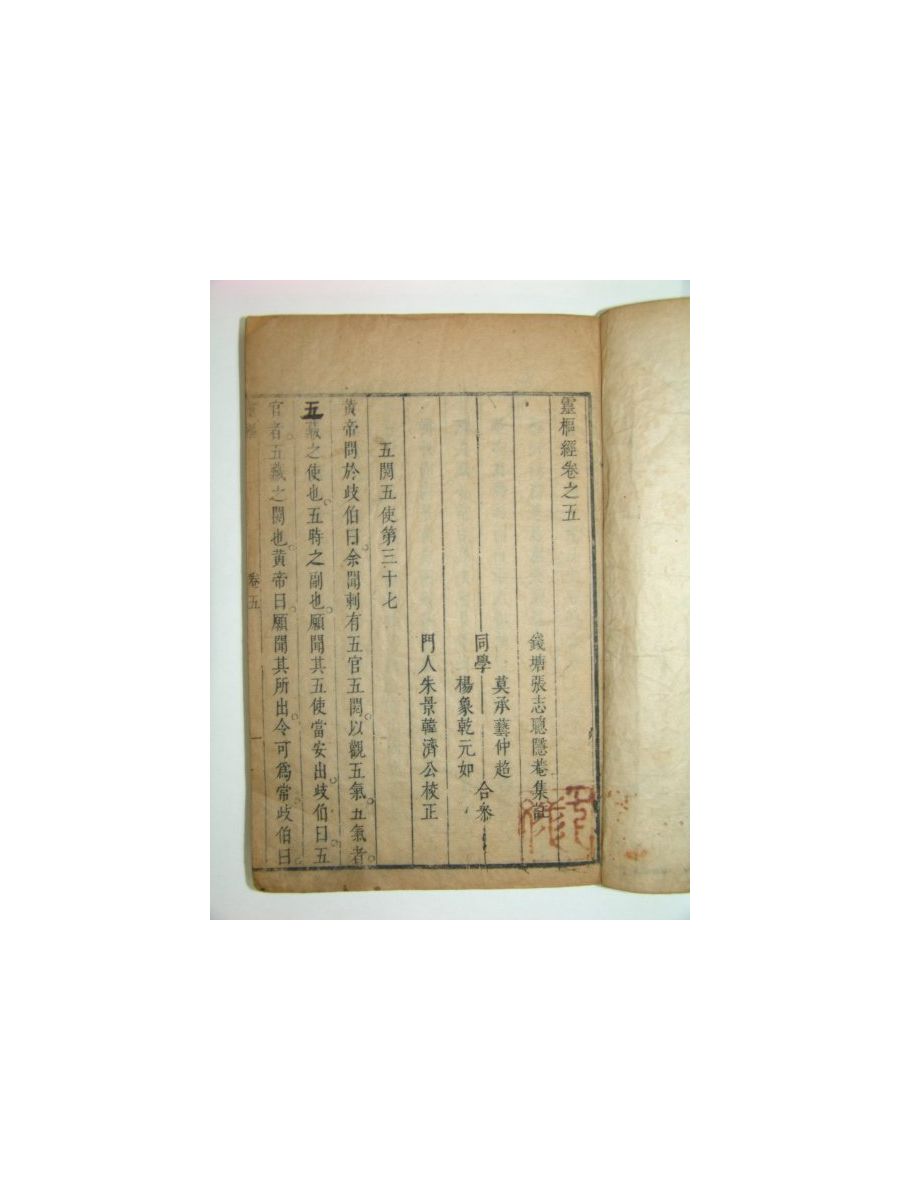 靈樞經卷之五
錢塘張志聰隱菴集註
同學
莫承藝仲超
楊象乾元如
合叅
門人朱景韓濟公校正
五閱五使第三十七
黃帝問於歧伯曰余聞刺有五官五閱以觀五氣五氣者
五藏之使也五時之副也願聞其五使當安出歧伯曰五
官者五藏之閱也黃帝曰願聞其所出令可爲常歧伯曰
卷五